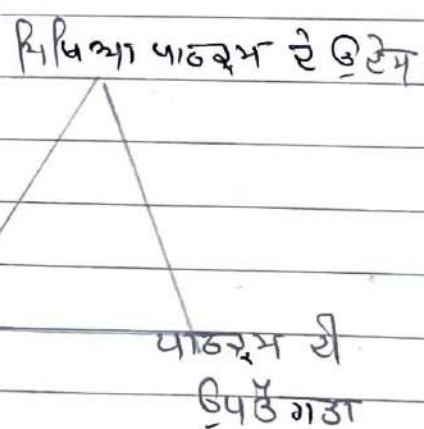 ਸਿਖਿਆ ਪਾਠਕ੍ਰਮ ਦੇ ਉਦੇਸ਼
ਪਾਠਕ੍ਰਮ ਦੀ
ਉਪਯੋਗਤਾ